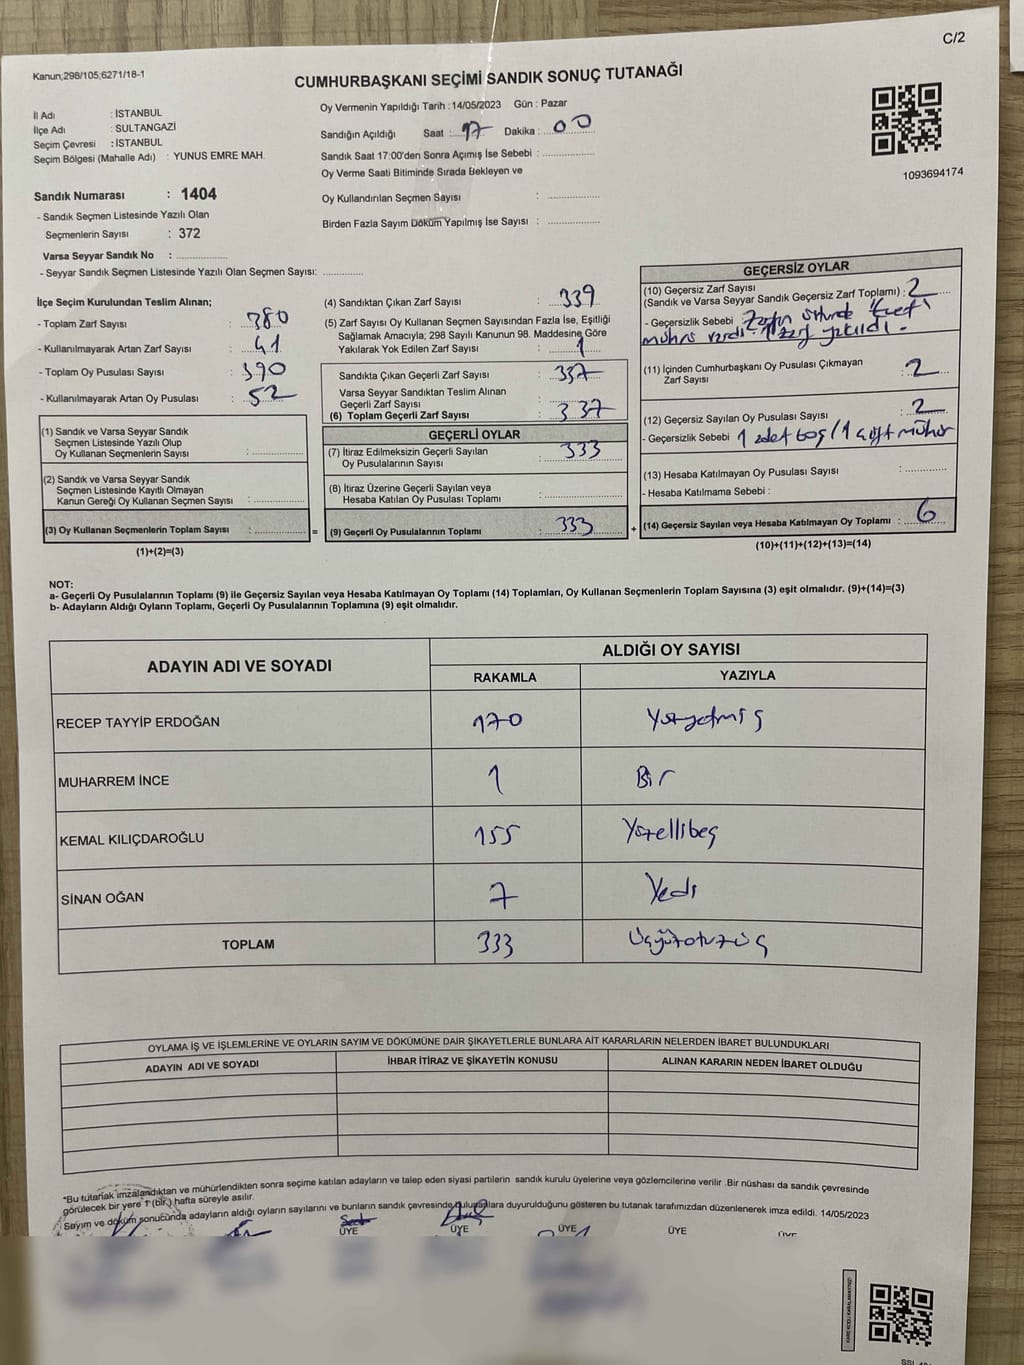 C/2
Kanun,298/105,6271/18-1
CUMHURBAŞKANI SEÇİMİ SANDIK SONUÇ TUTANAĞI
İl Adı : İSTANBUL
İlçe Adı : SULTANGAZİ
Seçim Çevresi : İSTANBUL
Seçim Bölgesi (Mahalle Adı) : YUNUS EMRE MAH.
Sandık Numarası : 1404
- Sandık Seçmen Listesinde Yazılı Olan
Seçmenlerin Sayısı : 372
Varsa Seyyar Sandık No : ..............
- Seyyar Sandık Seçmen Listesinde Yazılı Olan Seçmen Sayısı: ............
Oy Vermenin Yapıldığı Tarih : 14/05/2023 Gün : Pazar
Sandığın Açıldığı Saat : 17 Dakika : 00
Sandık Saat 17:00'den Sonra Açımış İse Sebebi : ..............
Oy Verme Saati Bitiminde Sırada Bekleyen ve
Oy Kullandırılan Seçmen Sayısı : ..............
Birden Fazla Sayım Döküm Yapılmış İse Sayısı : ..............
1093694174
İlçe Seçim Kurulundan Teslim Alınan;
- Toplam Zarf Sayısı : 380
- Kullanılmayarak Artan Zarf Sayısı : 41
- Toplam Oy Pusulası Sayısı : 390
- Kullanılmayarak Artan Oy Pusulası : 52
(1) Sandık ve Varsa Seyyar Sandık
Seçmen Listesinde Yazılı Olup
Oy Kullanan Seçmenlerin Sayısı : ..............
(2) Sandık ve Varsa Seyyar Sandık
Seçmen Listesinde Kayıtlı Olmayan
Kanun Gereği Oy Kullanan Seçmen Sayısı : ..............
(3) Oy Kullanan Seçmenlerin Toplam Sayısı : .............. =
(1)+(2)=(3)
(4) Sandıktan Çıkan Zarf Sayısı : 339
(5) Zarf Sayısı Oy Kullanan Seçmen Sayısından Fazla İse, Eşitliği
Sağlamak Amacıyla; 298 Sayılı Kanunun 98. Maddesine Göre
Yakılarak Yok Edilen Zarf Sayısı : 1
Sandıkta Çıkan Geçerli Zarf Sayısı : 337
Varsa Seyyar Sandıktan Teslim Alınan
Geçerli Zarf Sayısı : ..............
(6) Toplam Geçerli Zarf Sayısı : 337
GEÇERLİ OYLAR
(7) İtiraz Edilmeksizin Geçerli Sayılan
Oy Pusulalarının Sayısı : 333
(8) İtiraz Üzerine Geçerli Sayılan veya
Hesaba Katılan Oy Pusulası Toplamı : ..............
(9) Geçerli Oy Pusulalarının Toplamı : 333 +
GEÇERSİZ OYLAR
(10) Geçersiz Zarf Sayısı
(Sandık ve Varsa Seyyar Sandık Geçersiz Zarf Toplamı) : 2
- Geçersizlik Sebebi : Zarfın üstünde 'Evet'
mührü vardı - 1 zarf yakıldı.
(11) İçinden Cumhurbaşkanı Oy Pusulası Çıkmayan
Zarf Sayısı : 2
(12) Geçersiz Sayılan Oy Pusulası Sayısı : 2
- Geçersizlik Sebebi 1 adet boş / 1 çift mühür
(13) Hesaba Katılmayan Oy Pusulası Sayısı : ..............
- Hesaba Katılmama Sebebi :
(14) Geçersiz Sayılan veya Hesaba Katılmayan Oy Toplamı : 6
(10)+(11)+(12)+(13)=(14)
NOT:
a- Geçerli Oy Pusulalarının Toplamı (9) ile Geçersiz Sayılan veya Hesaba Katılmayan Oy Toplamı (14) Toplamları, Oy Kullanan Seçmenlerin Toplam Sayısına (3) eşit olmalıdır. (9)+(14)=(3)
b- Adayların Aldığı Oyların Toplamı, Geçerli Oy Pusulalarının Toplamına (9) eşit olmalıdır.
ADAYIN ADI VE SOYADI ALDIĞI OY SAYISI
RAKAMLA YAZIYLA
RECEP TAYYİP ERDOĞAN 170 Yüzyetmiş
MUHARREM İNCE 1 Bir
KEMAL KILIÇDAROĞLU 155 Yüzellibeş
SİNAN OĞAN 7 Yedi
TOPLAM 333 Üçyüzotuzüç
OYLAMA İŞ VE İŞLEMLERİNE VE OYLARIN SAYIM VE DÖKÜMÜNE DAİR ŞİKAYETLERLE BUNLARA AİT KARARLARIN NELERDEN İBARET BULUNDUKLARI
ADAYIN ADI VE SOYADI İHBAR İTİRAZ VE ŞİKAYETİN KONUSU ALINAN KARARIN NEDEN İBARET OLDUĞU
*Bu tutanak imzalandıktan ve mühürlendikten sonra seçime katılan adayların ve talep eden siyasi partilerin sandık kurulu üyelerine veya gözlemcilerine verilir .Bir nüshası da sandık çevresinde
görülecek bir yere 1 (bir.) hafta süreyle asılır.
Sayım ve döküm sonucunda adayların aldığı oyların sayılarını ve bunların sandık çevresinde bulunanlara duyurulduğunu gösteren bu tutanak tarafımızdan düzenlenerek imza edildi. 14/05/2023
ÜYE ÜYE ÜYE ÜYE